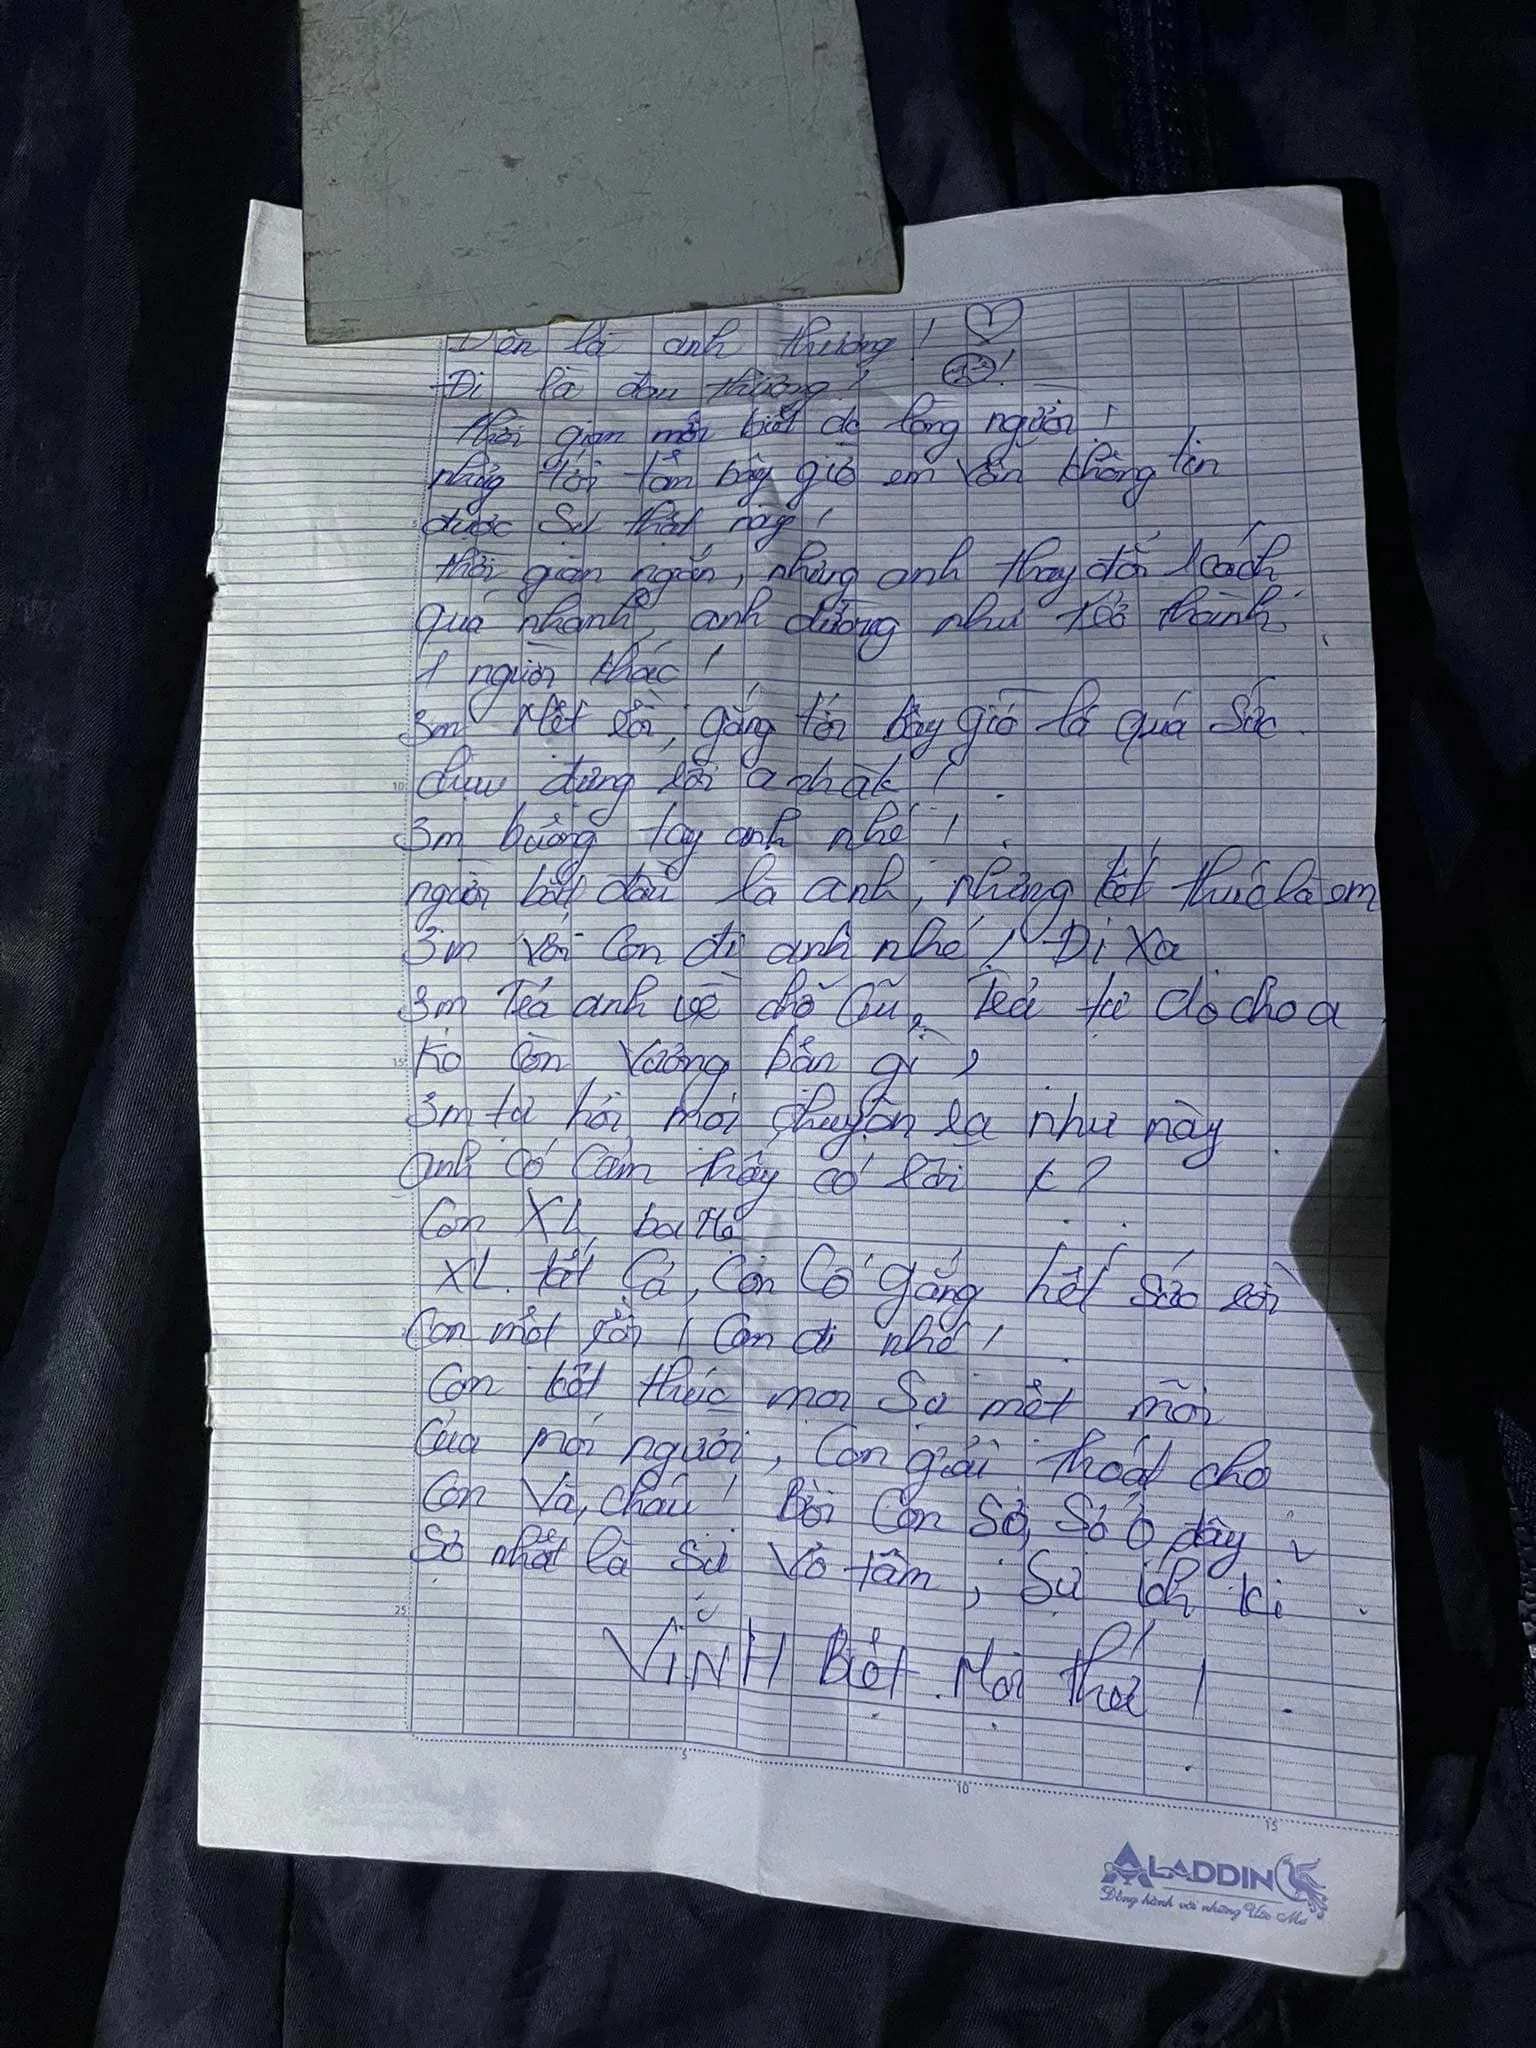 Đến là anh thương!
Đi là đau thương!
thời gian mới biết dc lòng người!
nhưng tới tầm bây giờ em vẫn không tin
được sự thật này!
thời gian ngắn, nhưng anh thay đổi cách
quá nhanh anh dường như trở thành
1 người khác!
Em mệt rồi, gắng tới bây giờ là quá sức
chịu đựng rồi anh ak!
Em buông tay anh nhé!
người bắt đầu là anh, nhưng kết thúc là em
Em với con đi anh nhé! Đi xa
Em trả anh về chỗ cũ, trả tự do cho a
ko còn vướng bận gì,
Em tự hỏi mọi chuyện ra như này
anh có cảm thấy có lỗi k?
Con XL ba mẹ
XL tất cả, con cố gắng hết sức rồi
Con mệt rồi! Con đi nhé!
Con kết thúc mọi sự mệt mỏi
Của mọi người, con giải thoát cho
Con và, cháu! Bởi con sợ, sợ ở đây
Sợ nhất là sự vô tâm, sự ích kỉ
VĨNH Biệt Mọi thứ!
5
10
15
25
5
10
15
ALADDIN
Đồng hành với những Ước Mơ